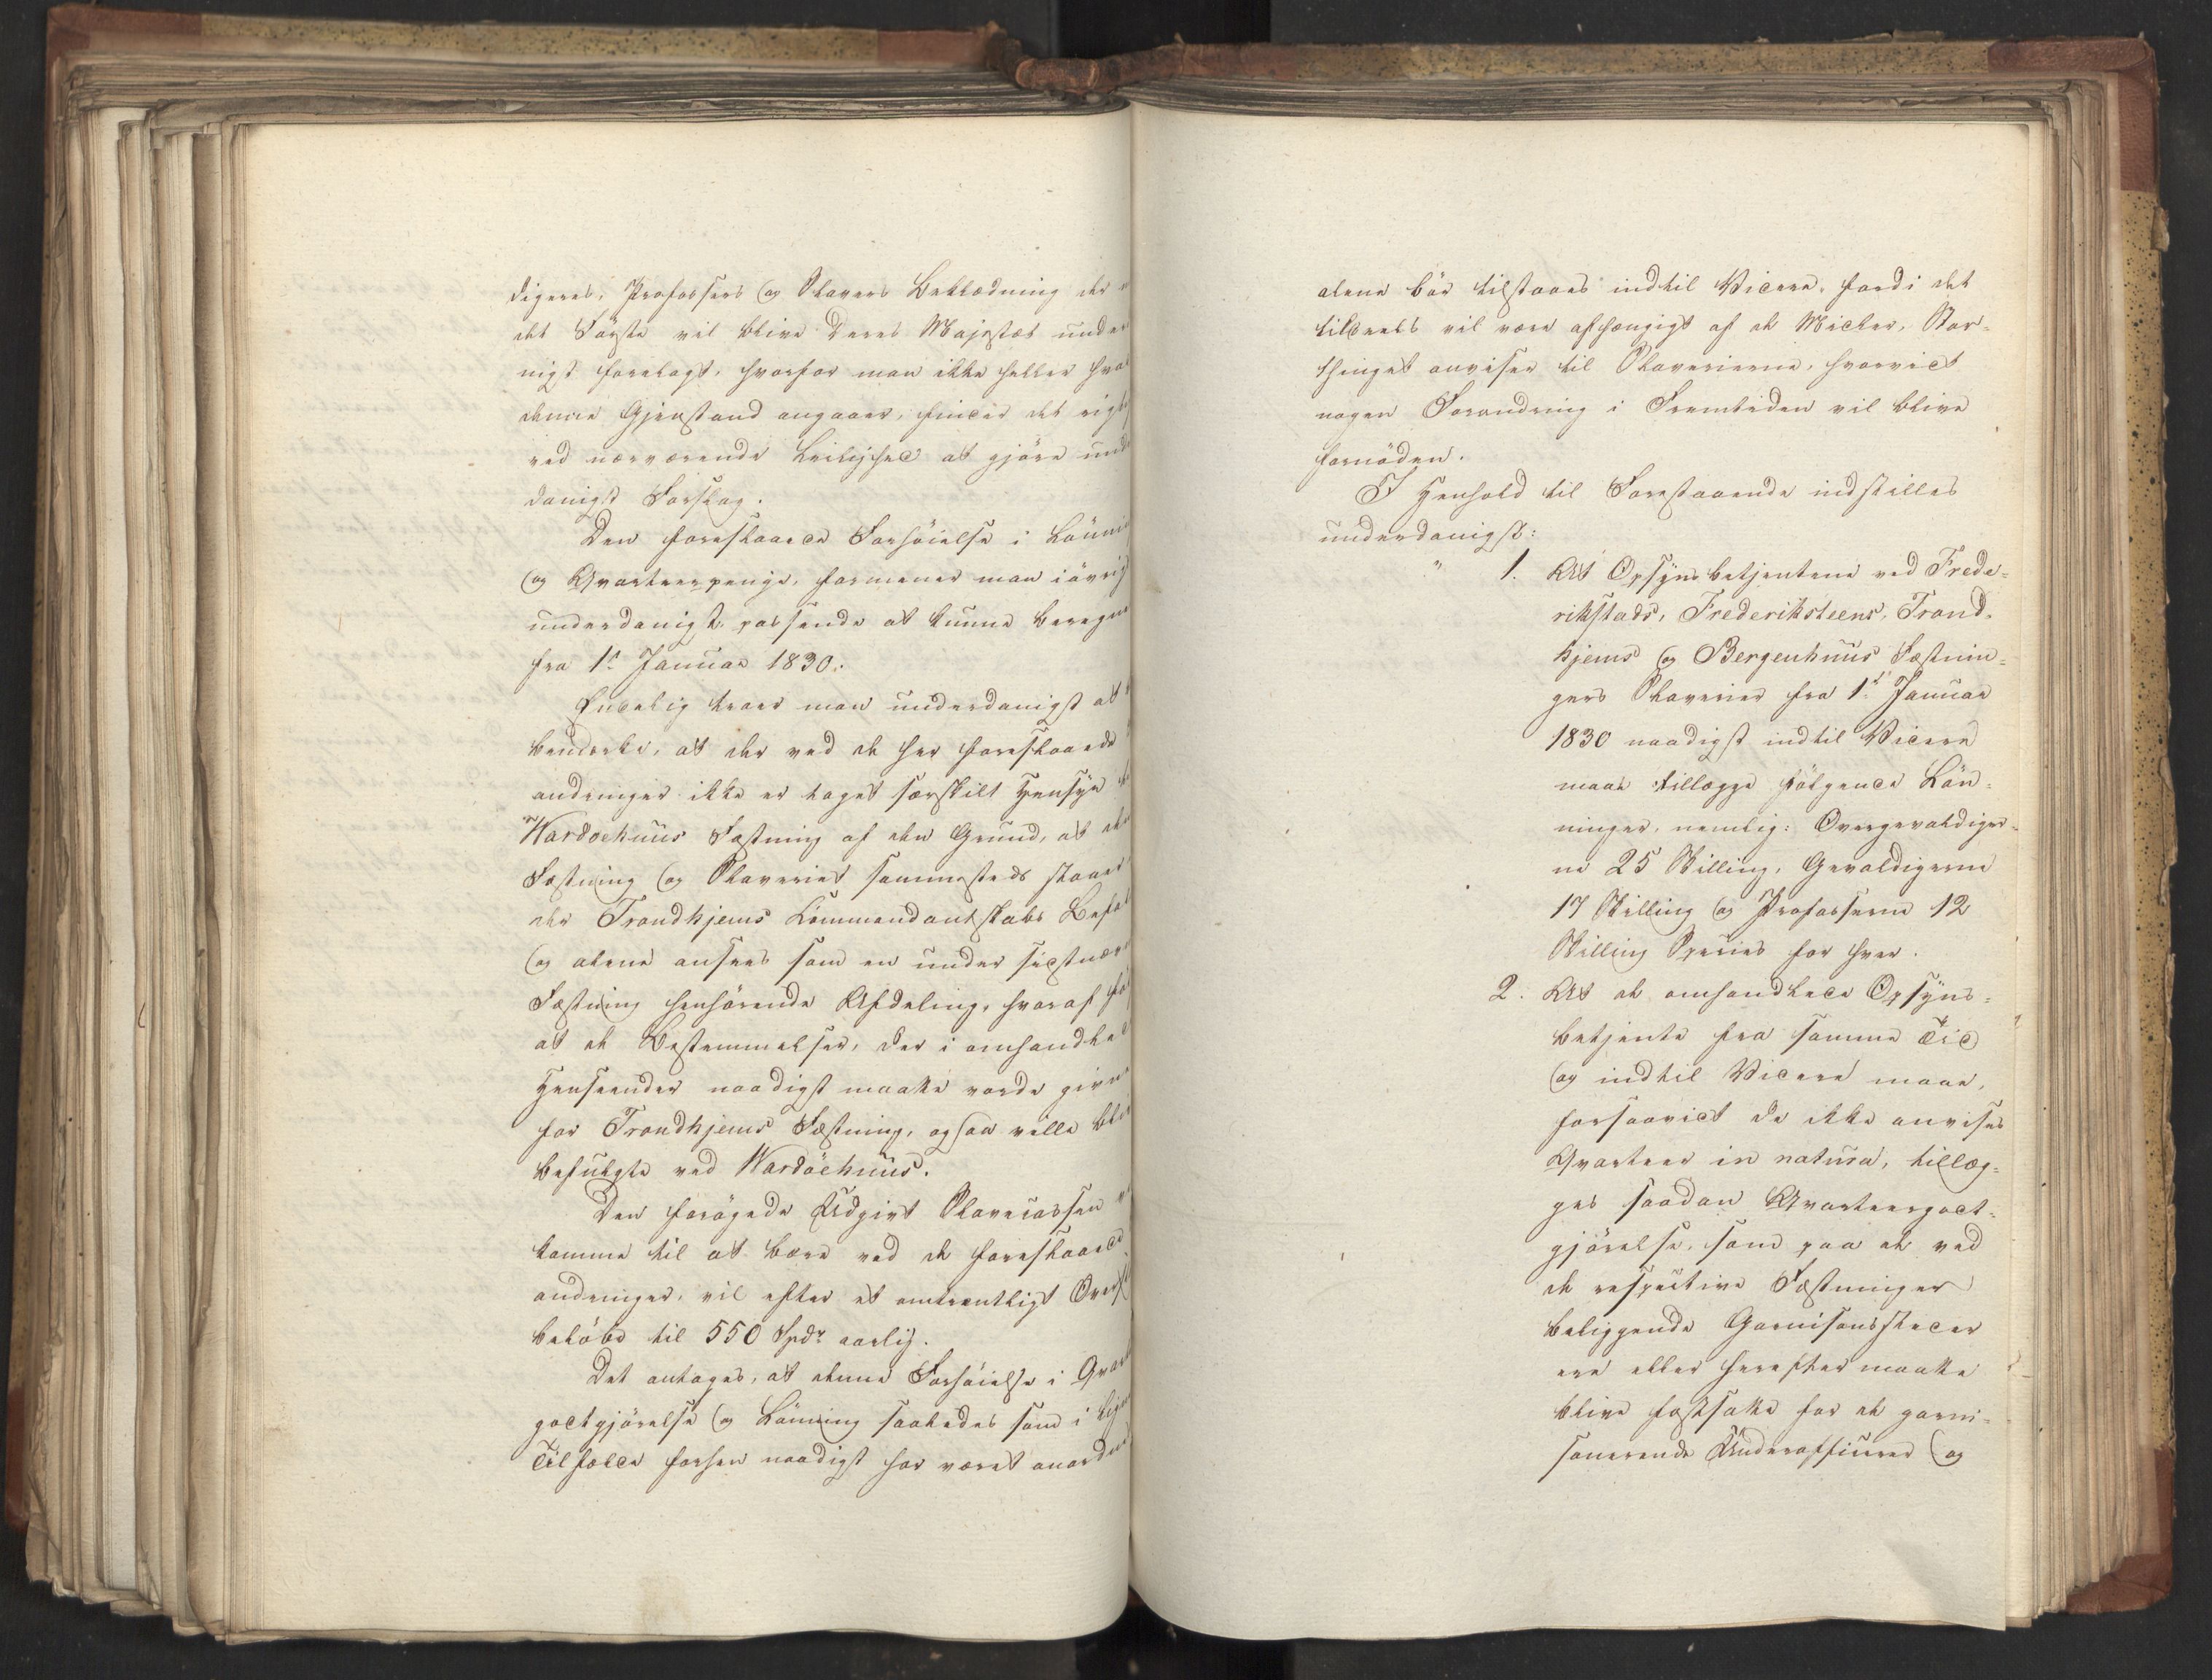 digeres, Profossers og Slavers Beklædning der
det Første vil blive Deres Majestæt under
nigst forelagt, hvorfor man ikke heller hvad
denne Gjenstand angaaer, finder det rigt
ved nærværende Leilighed at gjöre und
danigst Forslag.
Den foreslaaede Forhöielse i Lönni
og Qvarteerpenge, formener man iövrig
underdanigst passende at kunne beregne
fra 1te Januar 1830.
Endelig troer man underdanigst at
bemærke, at der ved de her foreslaaede
andringer ikke er taget særskilt Hensyn
Wardoehuus Fæstning af den Grund, at den
Fæstning og Slaveriet sammesteds staaer
der Trondhjems Commandantskabs Befal
og alene ansees som en under sidstnævn
Fæstning henhörende Afdeling, hvoraf föl
at de Bestemmelser, der i omhandlede
Henseender naadigst maatte vorde givne
for Trondhjems Fæstning, ogsaa ville bli
befulgte ved Wardöehuus.
Den forögede Udgivt Slavecassen
komme til at bære ved de foreslaaede
andringer, vil efter et omtrentligt Overs
belöbe til 550 Spdr aarlig.
Det antages, at denne Forhöielse i Qvar
godtgjörelse og Lönning saaledes som i lign
Tilfælde forhen naadigst har været anordne
alene bör tilstaaes indtil Videre, fordi det
tildeels vil være afhængigt af de Midler, Stor-
thinget anviser til Slaverierne, hvorvidt
nogen Forandring i Fremtiden vil blive
fornöden.
I Henhold til Forestaaende indstilles
underdanigst:
" 1. At Opsynsbetjentene ved Frede-
rikstads, Frederiksteens, Trond-
hjems og Bergenhuus Fæstnin-
gers Slaverier fra 1te Januar
1830 naadigst indtil Videre
maae tillægges fölgende Lön-
ninger, nemlig: Overgevaldiger-
ne 25 Skilling, Gevaldigerne
17 Skilling og Profosserne 12
Skilling Species for hver.
2. At de omhandlede Opsyns-
betjente fra samme Tid
og indtil Videre maae,
forsaavidt de ikke anvises
Qvarteer in natura, tillæg-
ges saadan Qvarteergodt-
gjörelse, som paa de ved
de respective Fæstninger
beliggende Garnisonssteder
ere eller herefter maatte
blive fastsatte for de garni-
sonerende Underofficerer og